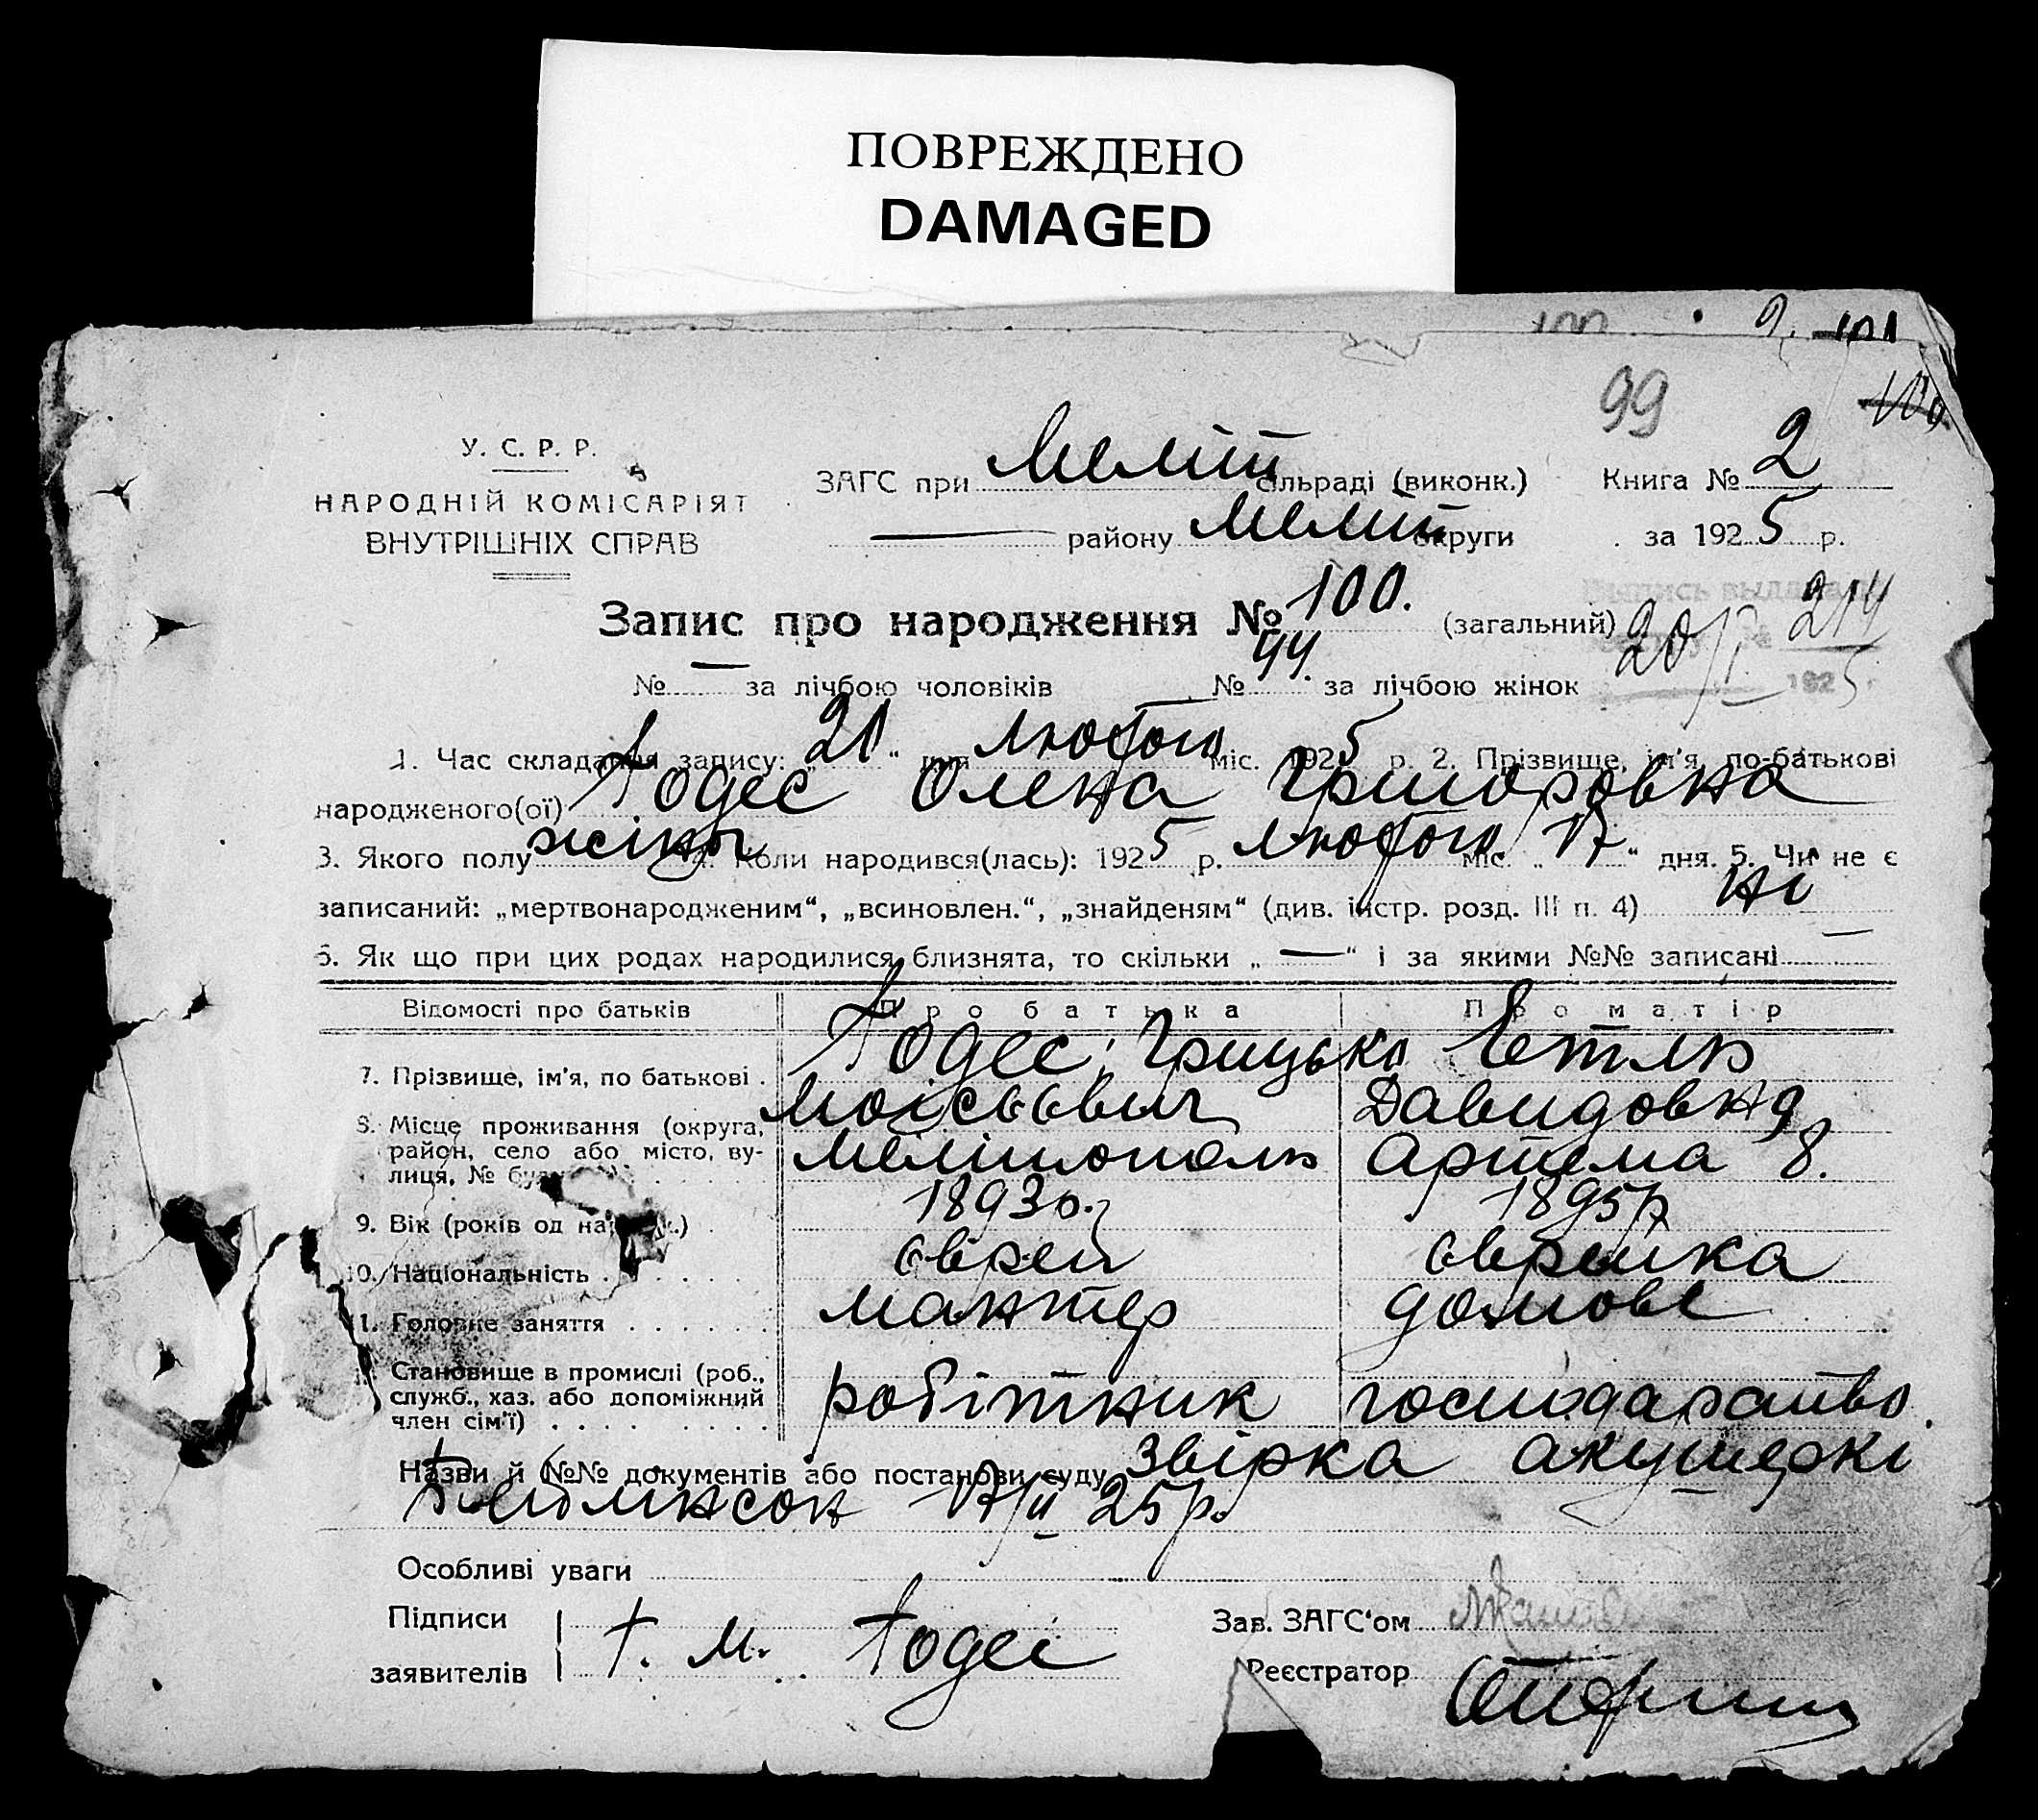 ПОВРЕЖДЕНО
DAMAGED
100 9 101
99 100
У. С. Р. Р.
НАРОДНІЙ КОМІСАРІЯТ
ВНУТРІШНІХ СПРАВ
ЗАГС при Меліт сільраді (виконк.) Книга № 2
— району Меліт округи за 1925 р.
Запис про народження № 100. (загальний)
Выпись выдана
20/ 214
1925 г.
№ — за лічбою чоловіків № 44. за лічбою жінок
1. Час складання запису: „21“ дня лютого міс. 1925 р. 2. Прізвище, ім'я, по-батькові
народженого(ої) Годес Олена Григоровна
3. Якого полу жіноч 4. Коли народився(лась): 1925 р. лютого міс. „17“ дня. 5. Чи не є
записаний: „мертвонародженим“, „всиновлен.“, „знайденям“ (див. інстр. розд. III п. 4) ні
6. Як що при цих родах народилися близнята, то скільки „—“ і за якими №№ записані —
Відомості про батьків Про батька Про матір
7. Прізвище, ім'я, по батькові . Годес, Грицько Етля
Моісєєвич Давидовна
8. Місце проживання (округа, район, село або місто, ву-
лиця, № буд Мелітополь Артема 8.
9. Вік (років од на .) . 1893р. 1895р
10. Національність . . . . . . єврей єврейка
11. Головне заняття . . . . . . мантер домове
Становище в промислі (роб.,
служб., хаз. або допоміжний
член сім'ї) . . . . . . . . робітник господарство.
Назви й №№ документів або постанови суду Звірка акушеркі
17/II 25р.
Особливі уваги
Підписи
заявителів Г. М. Годес
Зав. ЗАГС'ом
Реєстратор